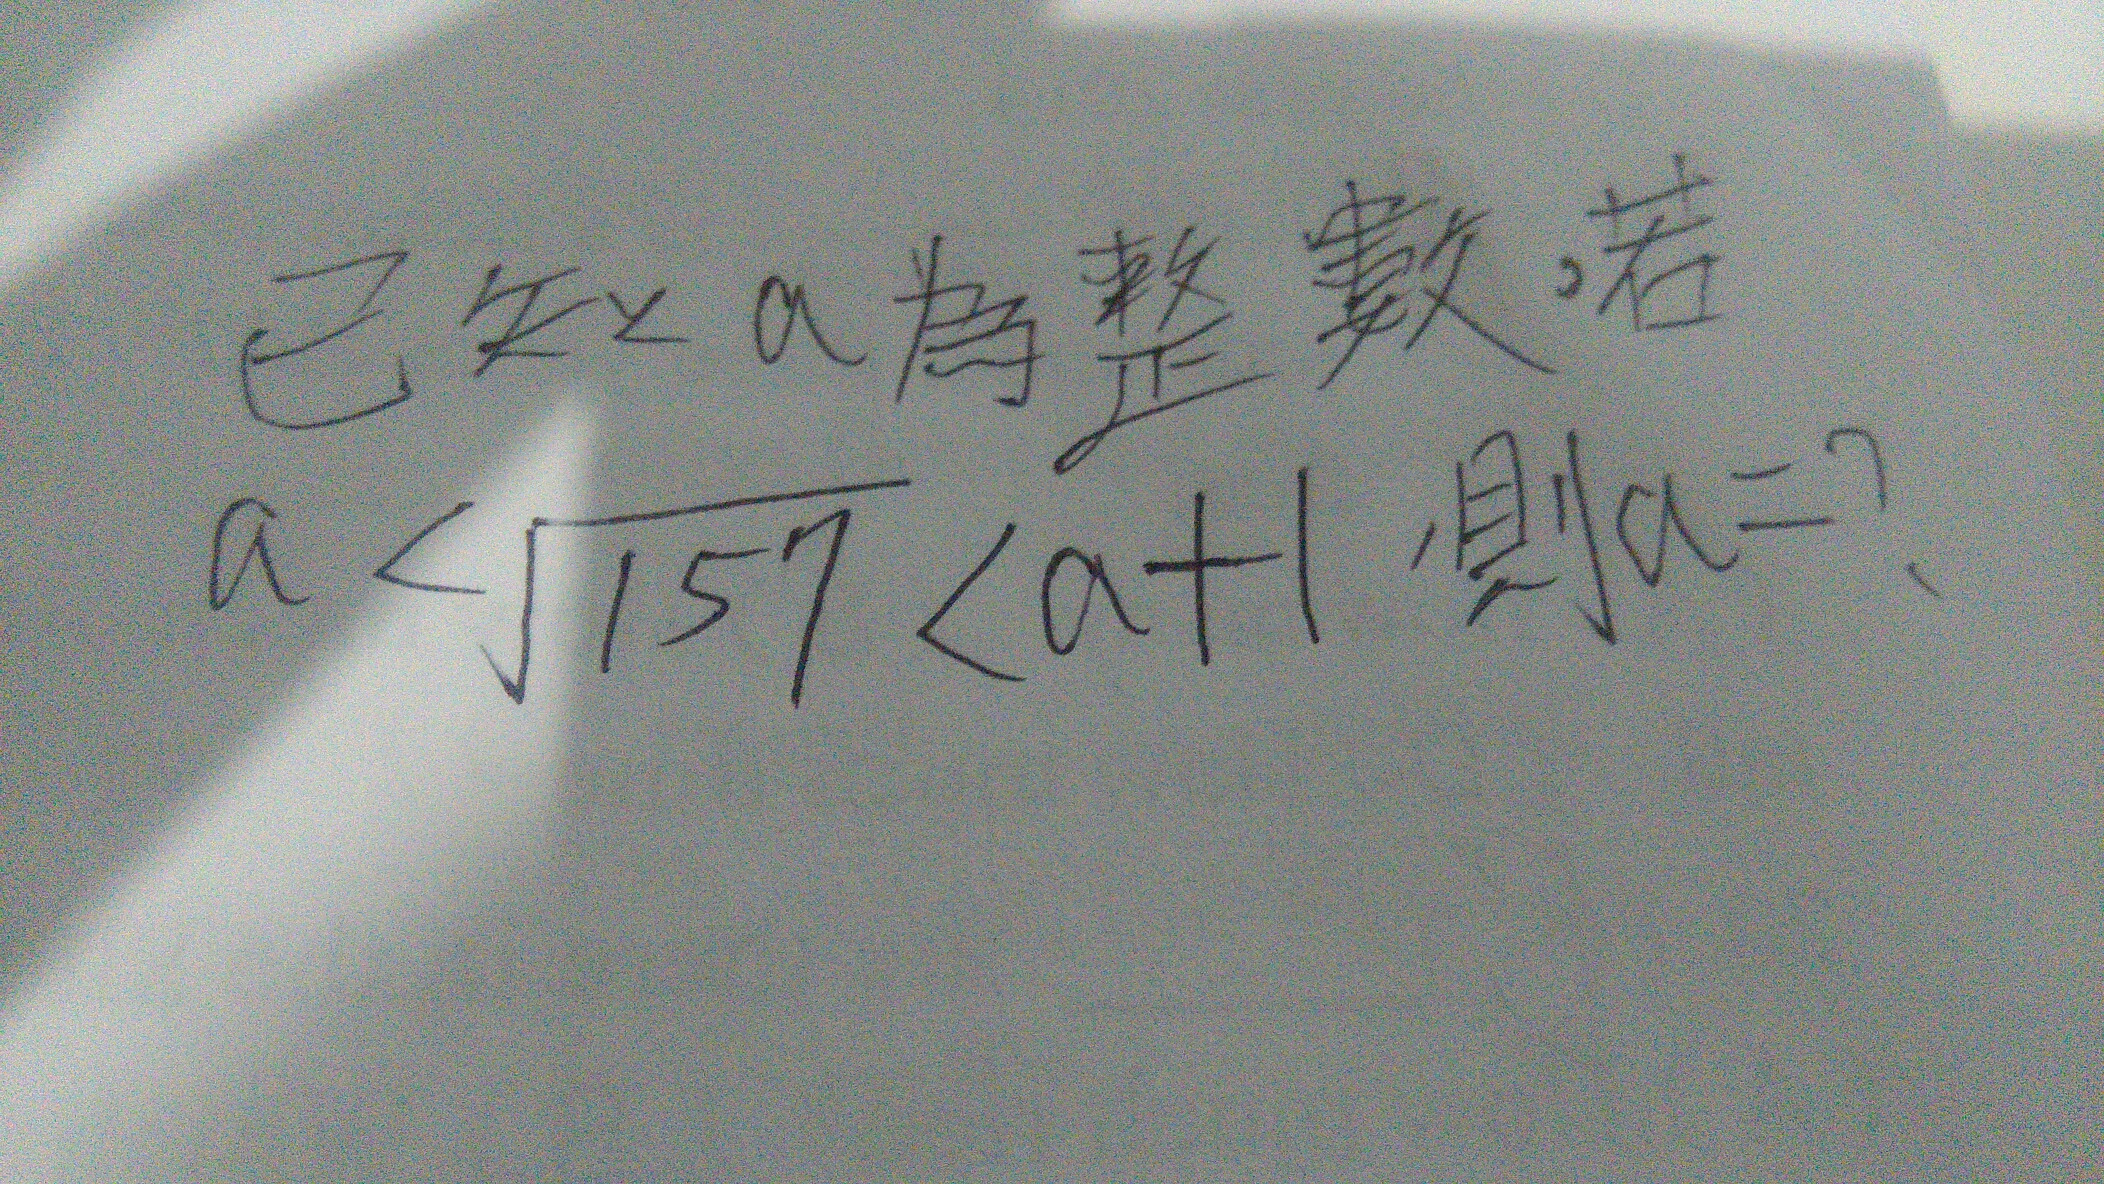 已知 a 為整數,若
a < √157 < a+1,則a=?